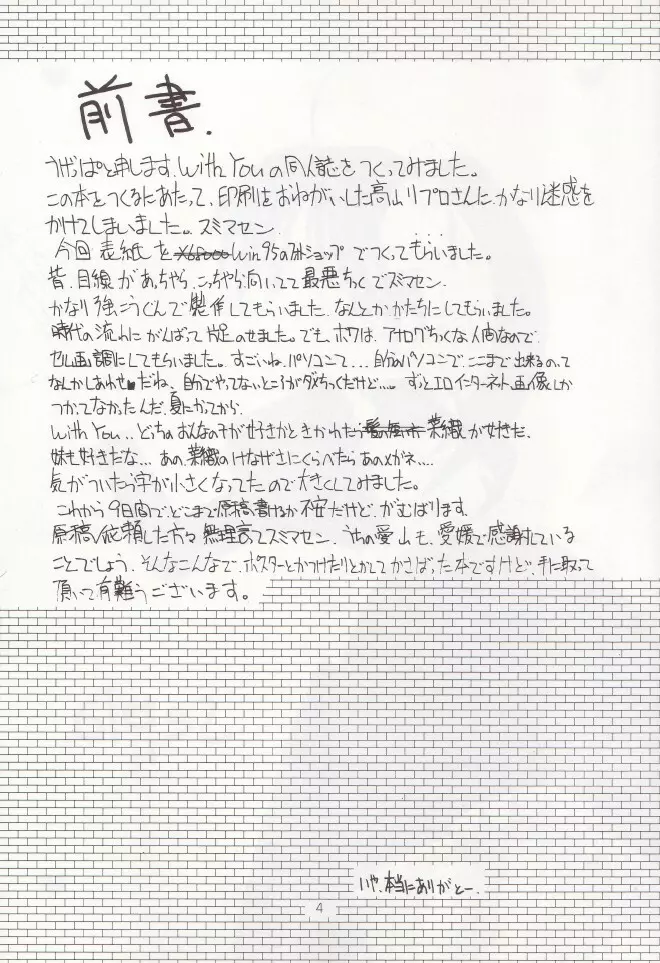 前書.
うげっぱと申します。With Youの同人誌をつくってみました。
この本をつくるにあたって、印刷をおねがいした高山リプロさんに、かなり迷惑を
かけてしまいました。スミマセン.
今回表紙をX68000Win95のフォトショップでつくってもらいました。
昔、目線があっちゃら、こっちゃら向いてて最悪ちっくでズミマセン.
かなり強こうぐんで製作してもらいました、なんとかかたちにしてもらいました。
時代の流れにがんばって片足のせました。でも、ボクは、アナログちっくな人間なので、
セル画調にしてもらいました。すごいね、パソコンて...自分のパソコンで、ここまで出来るのって
なんかしあわせ♥だね、自分でやってないところがダメちっくだけど...。ずっとエロインターネット画像しか
つかってなかったんだ、夏にかってから.
With You..どっちのおんなの子が好きかときかれたら菜織が好きだ、
妹も好きだな...あの、菜織のけなげさにくらべたらあのメガネ....
気がついたら字が小さくなってたので大きくしてみました。
これから9日間で、どこまで原稿書けるか不安だけど、がむばります.
原稿依頼した方々無理言ってスミマセン、うちの愛山も、愛媛で感謝している
ことでしょう、そんなこんなで、ポスターとかつけたりとかしてかさばった本ですけど、手に取って
頂いて有難うございます。
いや、本当にありがとー.
4